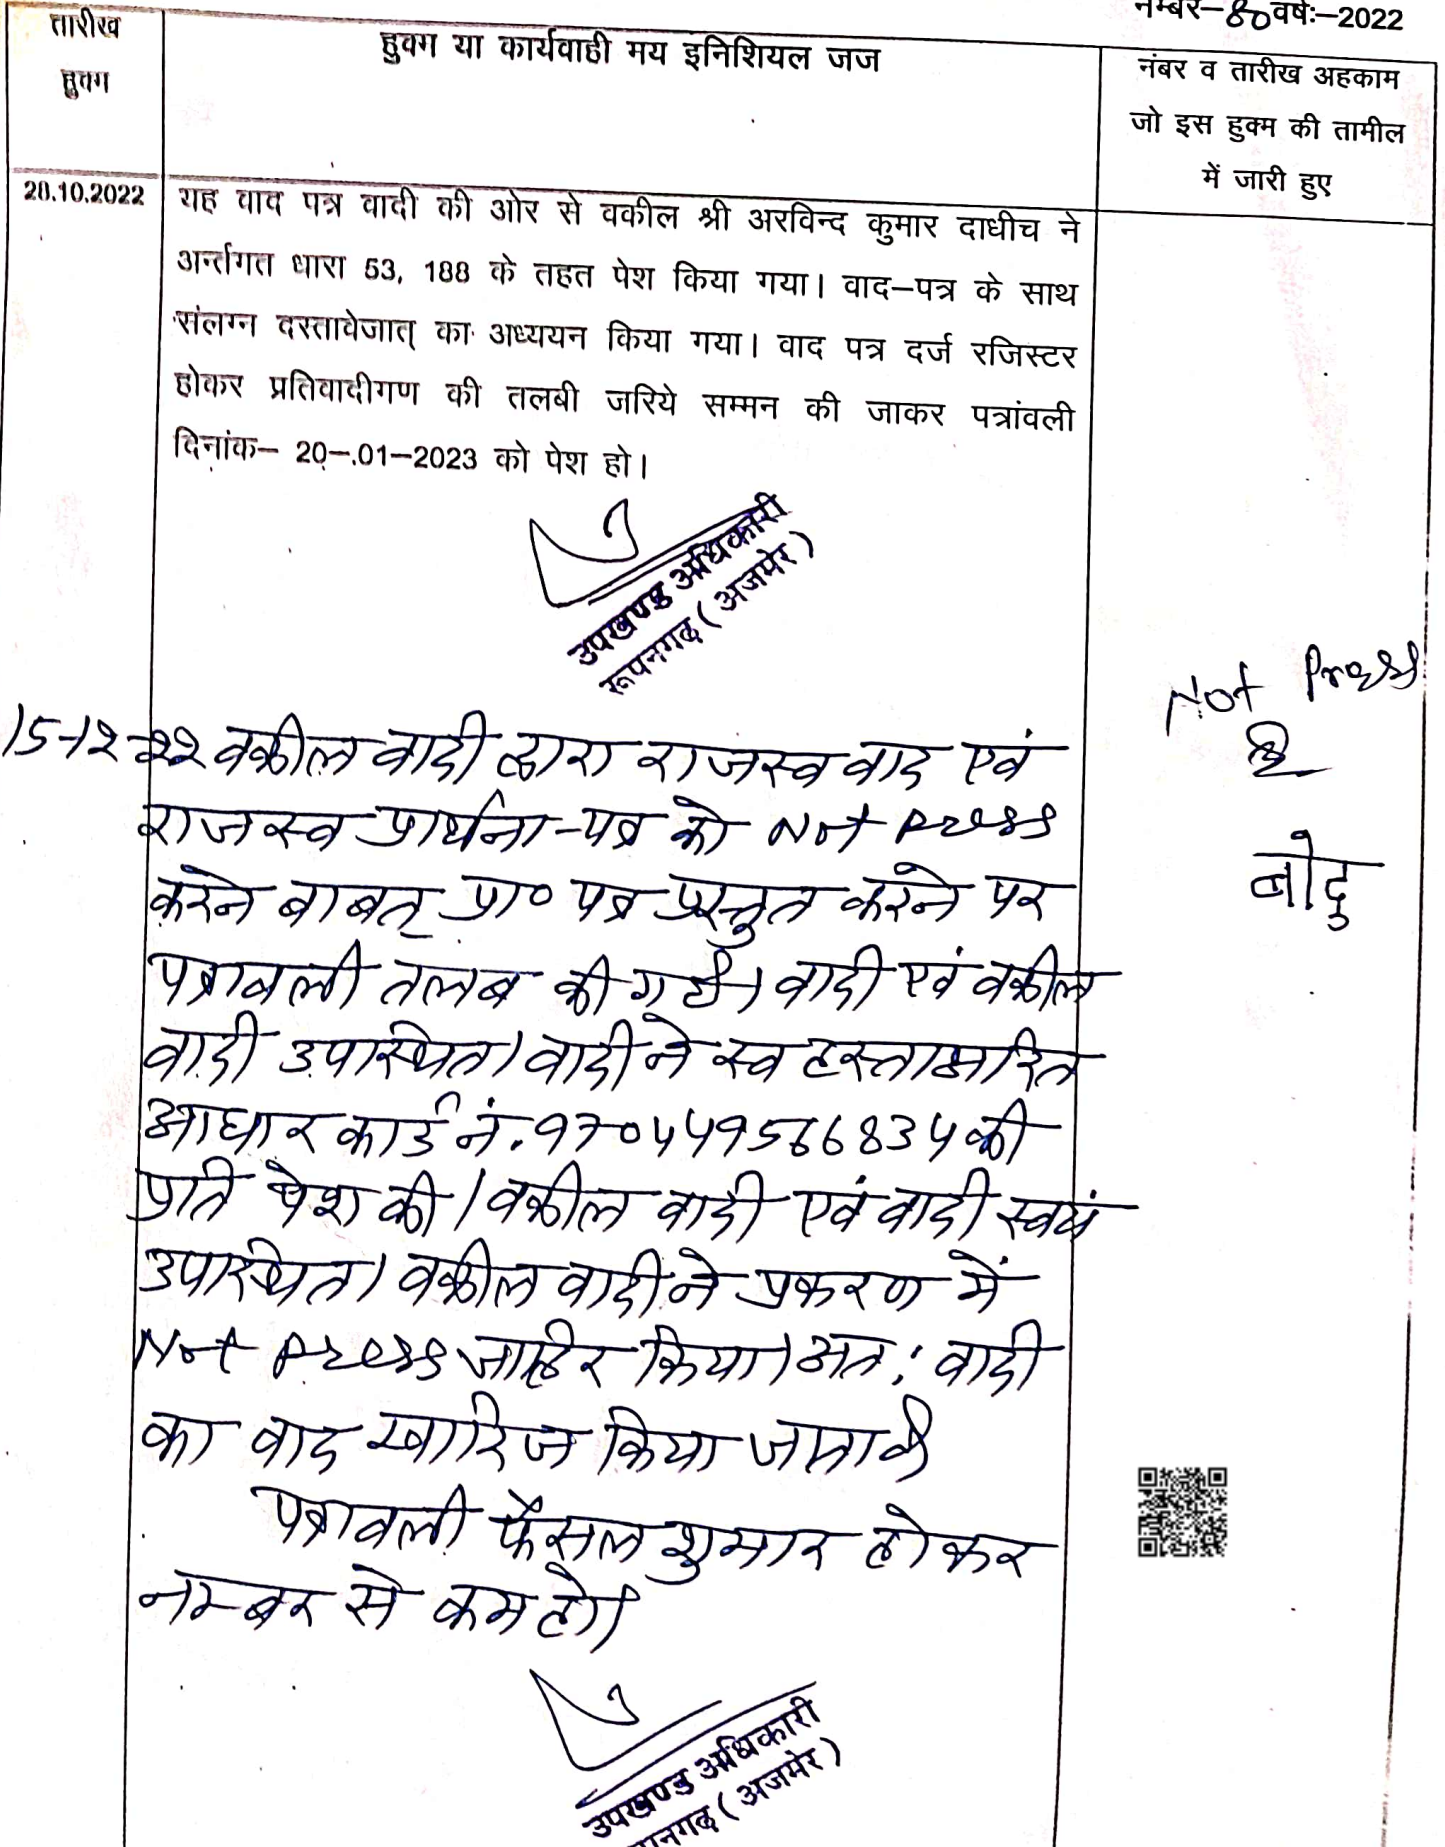 नम्बर–80 वर्षः–2022
तारीख
हुक्म
हुक्म या कार्यवाही मय इनिशियल जज
नंबर व तारीख अहकाम
जो इस हुक्म की तामील
में जारी हुए
20.10.2022
यह वाद पत्र वादी की ओर से वकील श्री अरविन्द कुमार दाधीच ने
अर्न्तगत धारा 53, 188 के तहत पेश किया गया। वाद–पत्र के साथ
संलग्न दस्तावेजात् का अध्ययन किया गया। वाद पत्र दर्ज रजिस्टर
होकर प्रतिवादीगण की तलबी जरिये सम्मन की जाकर पत्रांवली
दिनांक– 20–.01–2023 को पेश हो।
उपखण्ड अधिकारी
रूपनगढ़ (अजमेर)
15-12-22 वकील वादी द्वारा राजस्व वाद एवं
राजस्व प्रार्थना-पत्र को Not Press
करने बाबत् प्रा० पत्र प्रस्तुत करने पर
पत्रावली तलब की गई। वादी एवं वकील
वादी उपस्थित। वादी ने स्व हस्ताक्षरित
आधार कार्ड नं. 970449566834 की
प्रति पेश की। वकील वादी एवं वादी स्वयं
उपस्थित। वकील वादी ने प्रकरण में
Not Press जाहिर किया। अतः वादी
का वाद खारिज किया जाता है
पत्रावली फैसल शुमार होकर
नम्बर से कम हो।
Not Press
बोदु
उपखण्ड अधिकारी
नगढ़ (अजमेर)